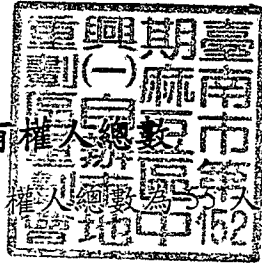 臺南市第152
期麻豆區中
興(一)自辦市地
重劃區重劃會
有權人總數
權人總數為 人